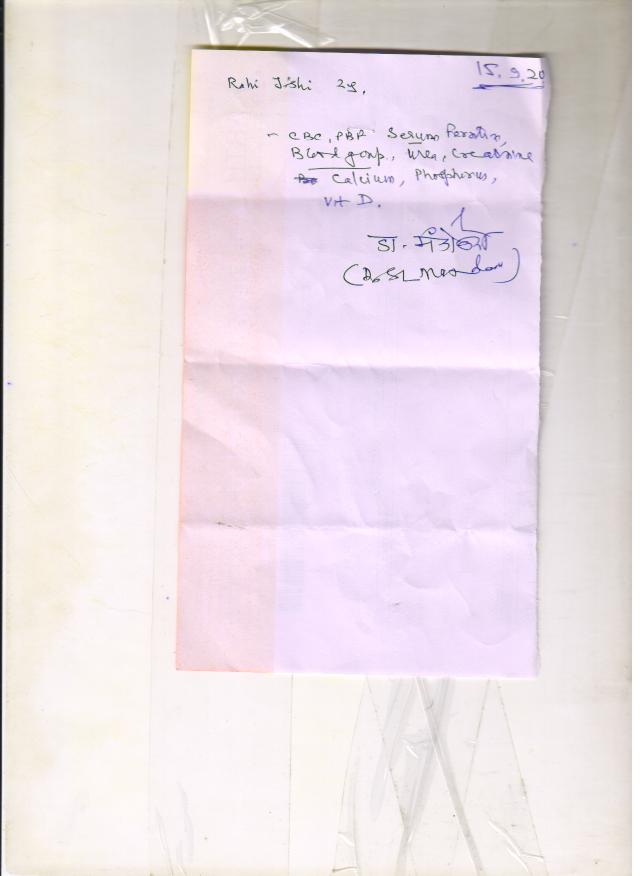 15.9.20
Rahi Jishi 2y.
- CBC, PBP Serum Feratin,
Blood gorup., Urea, Creatnine
Calcium, Phosphorus,
Vit D.
डा.